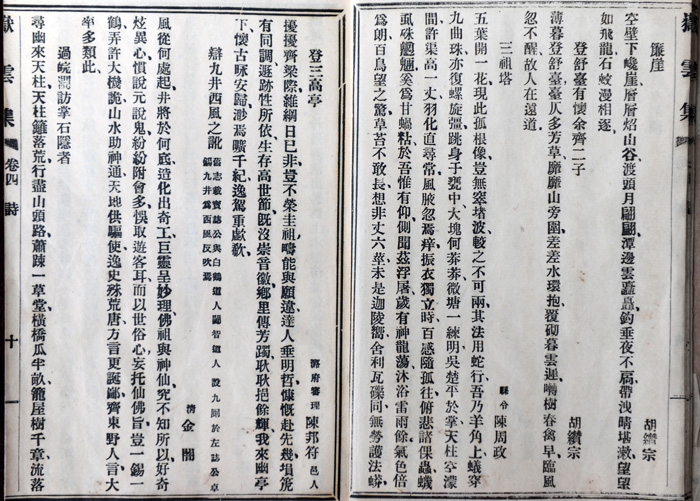 簾崖 胡纘宗
空壁下巉崖層層熖山谷渡頭月翩翩潭邊雲矗矗釣垂夜不扃帶洩晴堪漱望望
如飛龍石蛟漫相逐
登舒臺有懷余齊二子 胡纘宗
薄暮登舒臺臺仄多芳草離離山旁圍差差水環抱覆砌暮雲遲囀樹春禽早臨風
忽不醒故人在遠道
三祖塔 縣令 陳周政
五葉開一花現此孤根像豈無窣堵波較之不可兩其法用蛇行吾乃羊角上蟻穿
九曲珠亦復螺旋彊跳身于甕中大塊何莽莽微塘一練明吳楚平於掌天柱空濛
間許渠高一丈羽化直尋常風腋忽焉痒振衣獨立時百感隨孤往俯悲諸倮蟲蟻
虱硃魍魎奚爲甘蝸粘於吾惟有仰側聞茲浮屠歲有神龍蕩沐浴雷雨餘氣色倍
爲朗百鳥望之驚草苔不敢長想非丈六莖未是迦陵嚮舍利瓦礫同無勞護法蟒
登三高亭 潞府審理 陳邦符 邑人
擾擾齊梁際維綱日已非豈不榮圭祖疇能與願違達人垂明哲慷慨赴先幾塤箎
有同調遯跡性所依生存高世節旣沒崇音徽鄉里傳芳躅耿耿挹餘輝我來幽亭
下懷古咏安歸渺焉曠千紀逸駕重歔欷
辯九井西風之訛 舊志載寶誌公與白鶴道人鬭智道人設九圈於左誌公卓錫九井爲西風反吹焉 清 金
風從何處起井將於何底造化出奇工巨靈呈妙理佛祖與神仙究不知所以好奇
炫異心慣說元說鬼紛紛附會多悞取遊客耳而以世俗心妄托仙佛旨豈一錫一
鶴弄許大機詭山水助神通天地供驅使逸史殊荒唐方言更誕鄙齊東野人言大
率多類此
過皖澗訪掌石隱者
尋幽來天柱天柱籬落荒行盡山頭路蕭踈一草堂橫橋瓜半畝籠屋樹千章流落
嶽雲集 卷四 詩 十